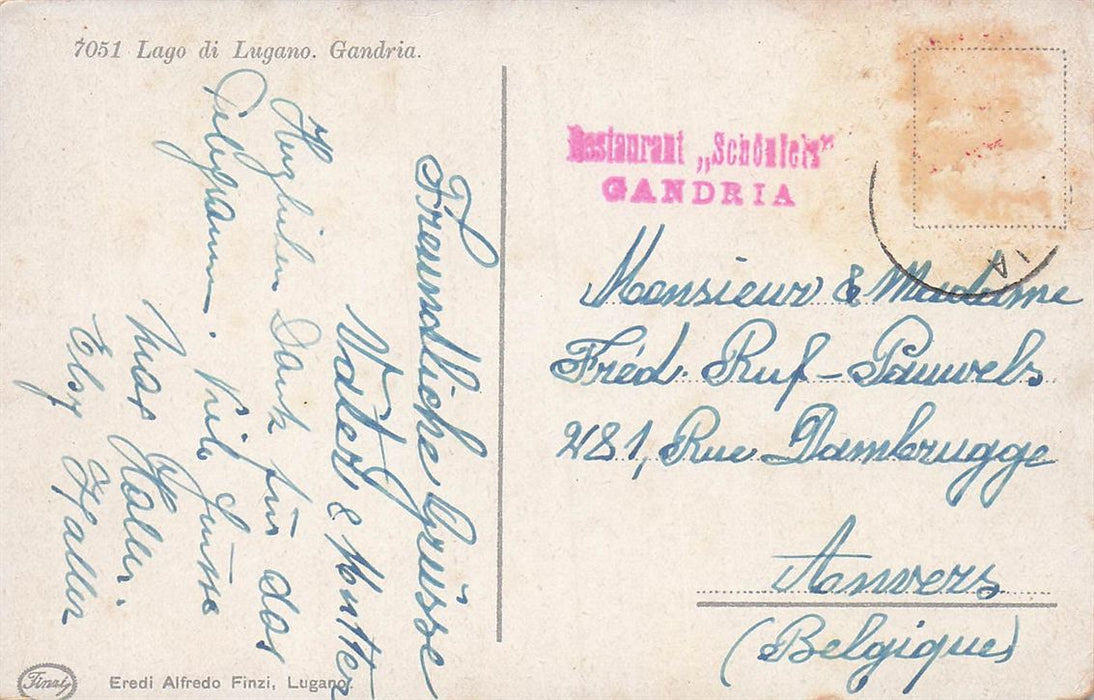 7051 Lago di Lugano. Gandria.
Freundliche Grüsse
Vater & Mutter
Herzlichen Dank für das
Telegramm. Viele Grüsse
Max Haller.
Elsy Haller
Restaurant „Schönfels"
GANDRIA
Monsieur & Madame
Fréd. Ruf-Pauwels
281, Rue Dambrugge
Anvers
(Belgique)
IA
Finzi
Eredi Alfredo Finzi, Lugano.